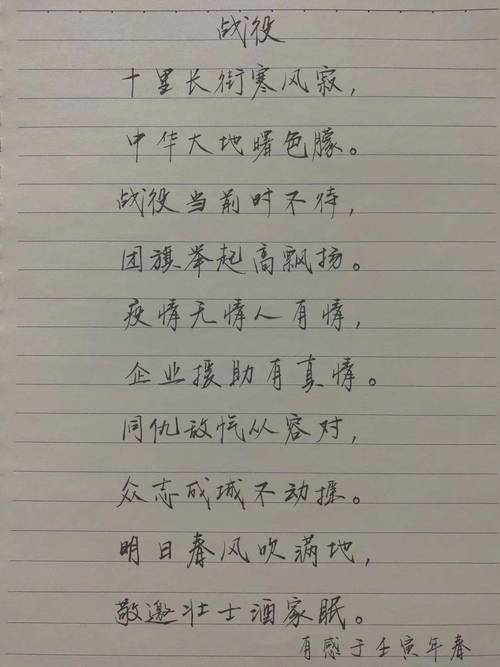 战役
十里长街寒风寂，
中华大地曙色朦。
战役当前时不待，
团旗举起高飘扬。
疫情无情人有情，
企业援助有真情。
同仇敌忾从容对，
众志成城不动摇。
明日春风吹满地，
敬邀壮士酒家眠。
有感于壬寅年春